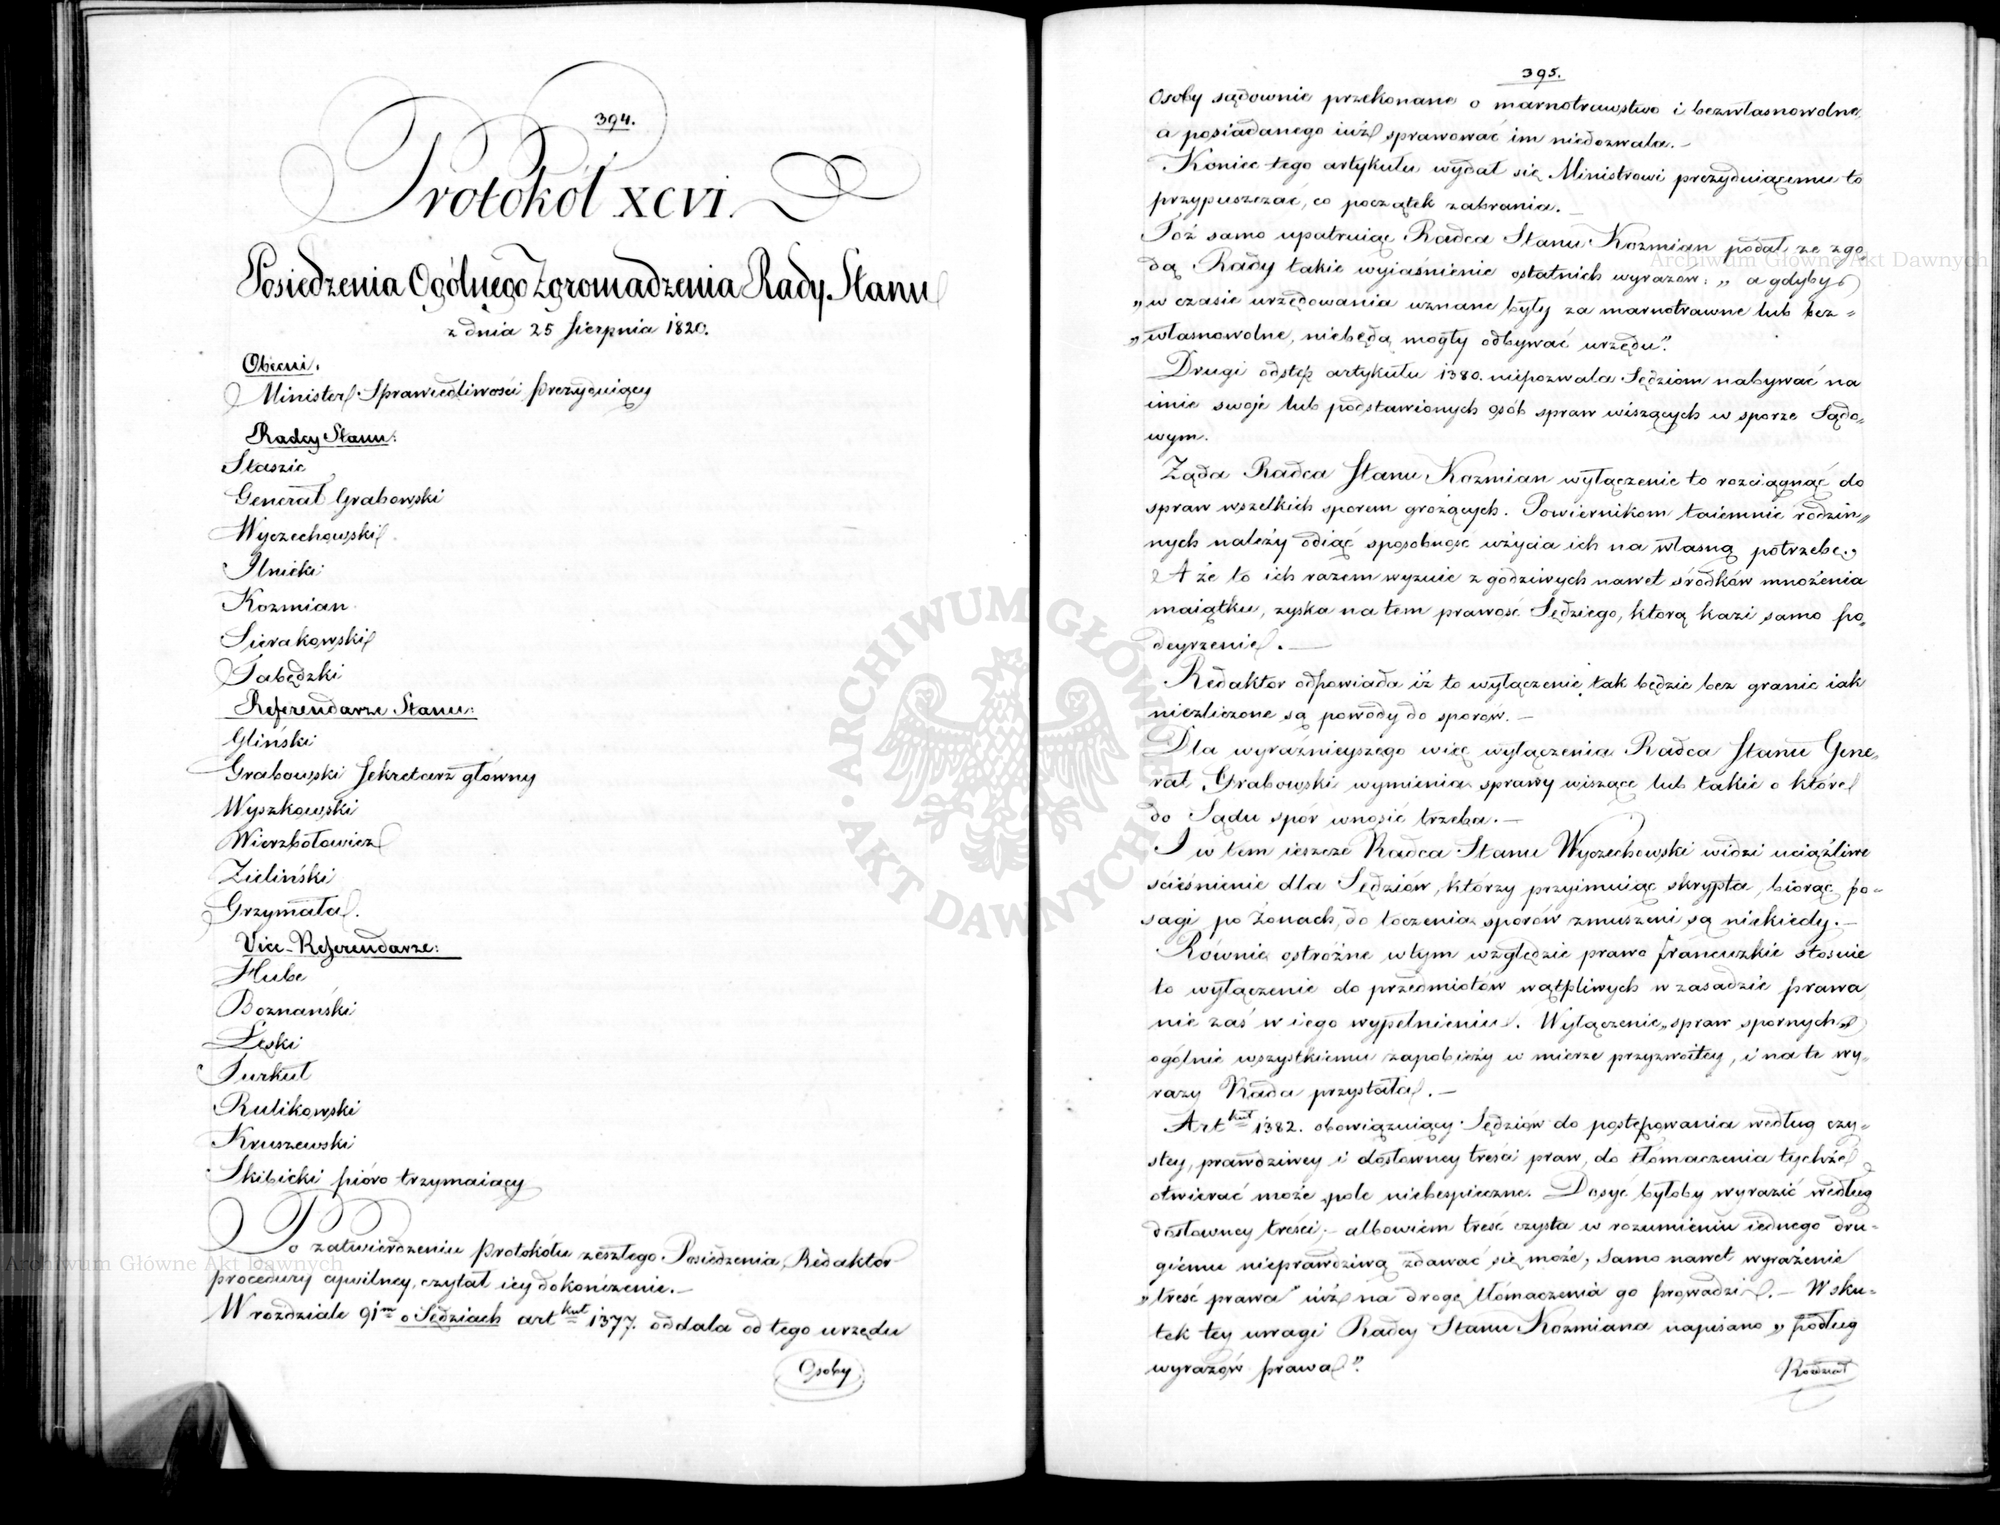 394.
Protokół XCVI.
Posiedzenia Ogólnego Zgromadzenia Rady Stanu
z dnia 25 Sierpnia 1820.
Obecni.
Minister Sprawiedliwości prezyduiący
Radcy Stanu:
Staszic
Generał Grabowski
Wyczechowski
Ilnicki
Kozmian
Sierakowski
Łabędzki
Referendarze Stanu:
Gliński
Grabowski Sekretarz główny
Wyszkowski
Wierzbołowicz
Zieliński
Grzymała.
Vice-Referendarze:
Hube
Boznański
Łęski
Turkuł
Rulikowski
Kruszewski
Skibicki pióro trzymaiący
Po zatwierdzeniu protokółu zeszłego Posiedzenia, Redaktor
procedury cywilney, czytał iey dokończenie.
W rozdziale 91m o Sędziach artkuł 1377. oddala od tego urzędu
Osoby
395.
Osoby sądownie przekonane o marnotrawstwo i bezwłasnowolne,
a posiadanego iuż sprawować im niedozwala.—
Koniec tego artykułu wydał się Ministrowi prezyduiącemu to
przypuszczać, co początek zabrania.—
Toż samo upatruiąc Radca Stanu Kozmian podał ze zgo,
dą Rady takie wyiaśnienie ostatnich wyrazów: „a gdyby
„w czasie urzędowania uznane były za marnotrawne lub bez-
„własnowolne, niebędą mogły odbywać urzędu".
Drugi odstęp artykułu 1380. niepozwala Sędziom nabywać na
imie swoje lub podstawionych osób spraw wiszących w sporze Sądo-
wym.
Żąda Radca Stanu Kozmian wyłączenie to rozciągnąć do
spraw wszelkich sporem grożących. Powiernikom taiemnic rodzin„
nych należy odiąć sposobność użycia ich na własną potrzebę.
A że to ich razem wyzuie z godziwych nawet środków mnożenia
maiątku, zyska na tem prawość Sędziego, którą kazi samo po,
deyrzenie.—
Redaktor odpowiada iż to wyłączenie tak będzie bez granic iak
niezliczone są powody do sporów.—
Dla wyraźnieyszego więc wyłączenia Radca Stanu Gene-
rał Grabowski wymienia sprawy wiszące lub takie o które
do Sądu spór wnosić trzeba.—
I w tem ieszcze Radca Stanu Wyczechowski widzi uciążliwe
ścieśnienie dla Sędziów, którzy przyimuiąc skrypta, biorąc po-
sagi po żonach, do toczenia sporów zmuszeni są niekiedy.—
Równie ostróżne w tym względzie prawo francuzkie stosuie
to wyłączenie do przedmiotów wątpliwych w zasadzie prawa
nie zaś w iego wypełnieniu. Wyłączenie „spraw spornych„
ogólnie wszystkiemu zapobieży w mierze przyzwoitey, i na te wy,
razy Rada przystała.—
Artkuł 1382. obowiązuiący Sędziów do postępowania według czy,
stey, prawdziwey i dosłowney treści praw, do tłómaczenia tychże
otwierać może pole niebespieczne. Dosyć byłoby wyrazić według
dosłowney treści;– albowiem treść czysta w rozumieniu iednego dru-
giemu nieprawdziwą zdawać się może, samo nawet wyrażenie
„treść prawa" iuż na drogę tłómaczenia go prowadzi.— W sku-
tek tey uwagi Radcy Stanu Kozmiana napisano „podług
wyrazów prawa".
Rozdział
ARCHIWUM GŁÓWNE AKT DAWNYCH
Archiwum Główne Akt Dawnych
Archiwum Główne Akt Dawnych